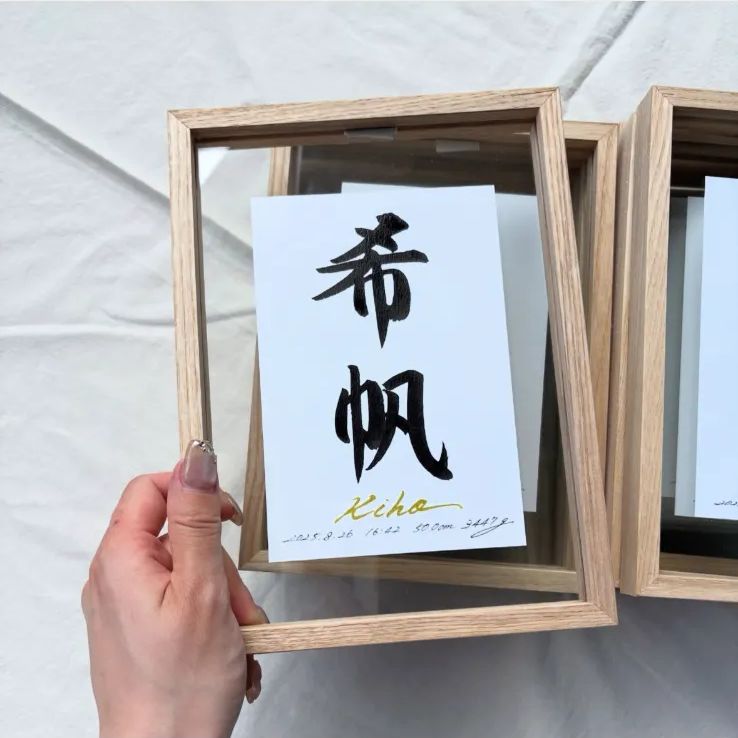 希帆
Kiho
2025.8.26 16:42 50.0cm 3447g